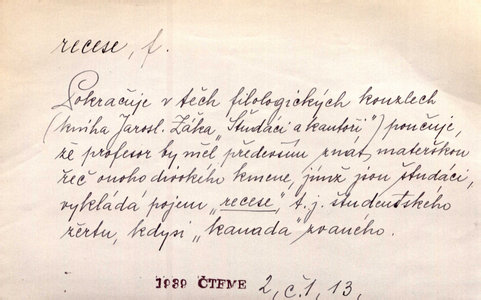 recese, f.
Pokračuje v těch filologických kouzlech
(kniha Jarosl. Žáka „Študáci a kantoři") poučuje,
že profesor by měl především znát mateřskou
řeč onoho divokého kmene, jímž jsou študáci,
vykládá pojem „recese", t. j. študentského
žertu, kdysi „kanada" zvaného.
1939 ČTEME 2, č. 1, 13,